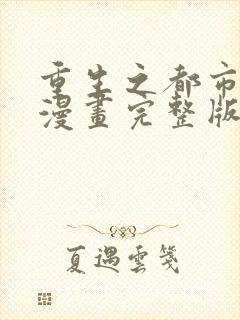 重生之都市
漫畫完整版
夏遇雲箋